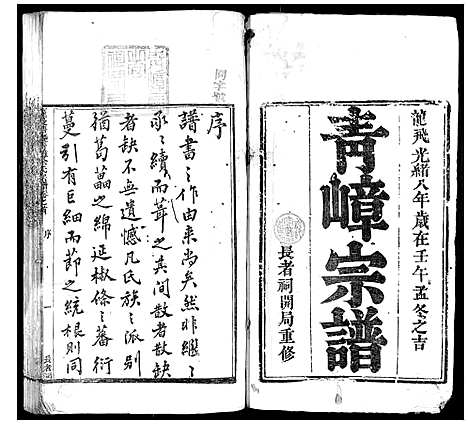 龍飛光緒八年歲在壬午孟冬之吉
青嶂宗譜
長者祠開局重修
序
譜書之作由来尚矣然非繼〻
承〻續而葺之其間散者散缺
者缺不無遺憾凡氏族〻派别
猶葛藟之綿延椒條〻蕃衍
蔓引有巨細而節之統根則同